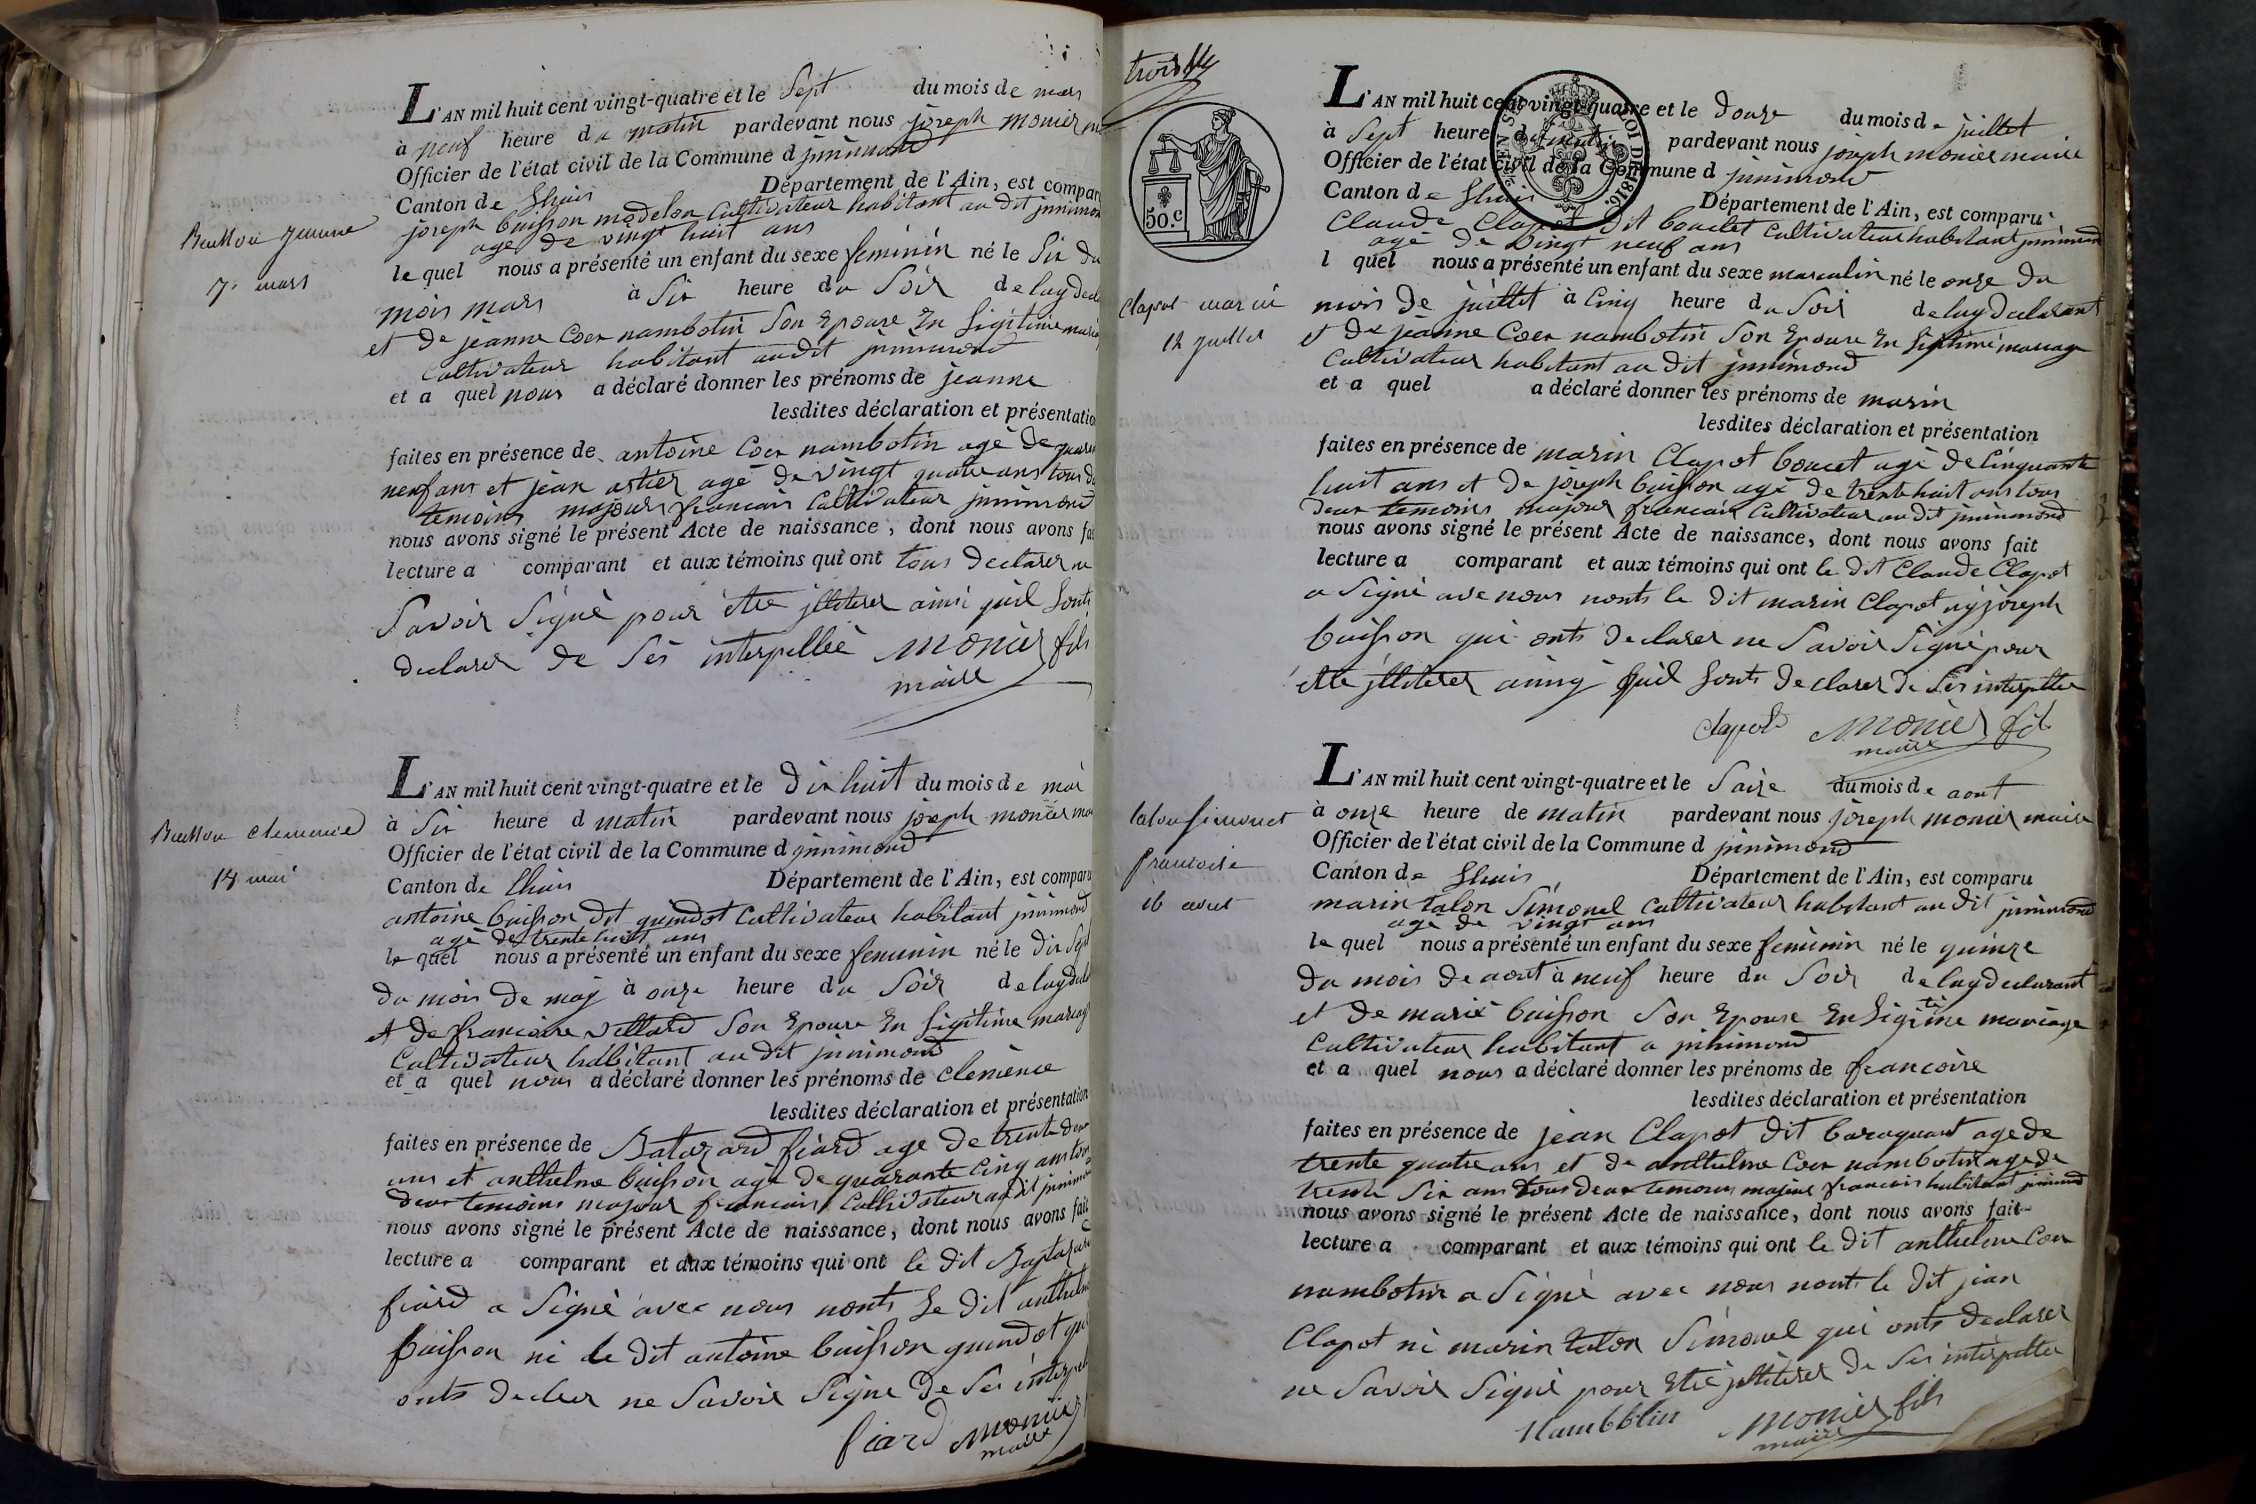 L'AN mil huit cent vingt-quatre et le Sept du mois de mars
à neuf heure du matin pardevant nous joseph monier
Officier de l'état civil de la Commune d jnnimond
Canton de Lhuis Département de l'Ain, est compar
joseph buisson modelon Cultivateur habitant au dit jnnimon
agé de vingt huit ans
le quel nous a présenté un enfant du sexe feminin né le Six du
mois mars à Six heure du Soir de luy decla
et de jeanne Coer nambotin Son Epouse En Ligitime mariag
Cultivateur habitant audit jnnimond
et a quel nous a déclaré donner les prénoms de jeanne
lesdites déclaration et présentatio
faites en présence de antoine Coer nambotin agé de quaran
neuf ans et jean astier agé de vingt quatre ans tous d
temoins majours francais Cultivateur jnnimond
nous avons signé le présent Acte de naissance, dont nous avons fai
lecture a comparant et aux témoins qui ont tous declarer ne
Savoir Signé pour être jlliterer ainsi quil Sonts
declarer de Ses interpellée monier fils
maire
Buisson jeanne
7. mars
L'AN mil huit cent vingt-quatre et le dix huit du mois de mai
à Six heure d matin pardevant nous joseph monier mai
Officier de l'état civil de la Commune d jnnimond
Canton de Lhuis Département de l'Ain, est comparu
antoine buisson dit guindot Cultivateur habitant jnnimond
agé de trente huit ans
le quel nous a présenté un enfant du sexe feminin né le dix Sept
du mois de maj à onze heure du Soir de luy decla
et de francoise villard Son Epouse En Ligitime mariage
Cultivateur habitant au dit jnnimond
et a quel nous a déclaré donner les prénoms de clemence
lesdites déclaration et présentation
faites en présence de Batazard fiard age de trente deux
ans et anthelme buisson agé de quarante Cinq ans tous
deux temoins majour francais Cultivateur au dit jnnimon
nous avons signé le présent Acte de naissance, dont nous avons fait
lecture a comparant et aux témoins qui ont le dit Baptazard
fiard a Signé avec nous nonts le dit anthelme
buisson ni le dit antoine buisson guindot qui
onts declar ne Savoir Signe de Ses interpel
fiard monier
maire
Buisson clemence
18 mai
trois
50.c
LOI DE 1816.
L'AN mil huit cent vingt-quatre et le douze du mois de juillet
à Sept heure du matin pardevant nous joseph monier maire
Officier de l'état civil de la Commune d jnnimond
Canton de Lhuis Département de l'Ain, est comparu
Claude Clapot dit bouclet Cultivateur habitant jnnimond
agé de vingt neuf ans
l quel nous a présenté un enfant du sexe masculin né le onze du
mois de juillet à Cinq heure du Soir de luy declarant
et de jeanne Coer nambotin Son Epouse En Ligitime mariage
Cultivateur habitant au dit jnnimond
et a quel a déclaré donner les prénoms de marin
lesdites déclaration et présentation
faites en présence de marin Clapot boucet agé de Cinquante
huit ans et de joseph buisson agé de trente huit ans tous
deux temoins majour francais Cultivateur au dit jnnimond
nous avons signé le présent Acte de naissance, dont nous avons fait
lecture a comparant et aux témoins qui ont le dit Claude Clapot
a Signé avenous nonts le dit marin Clapot nij joseph
buisson qui onts declarer ne Savoir Signé pour
être jlliterer ainsy quil Sonts declarer de Ses interpeller
Clapot monier fils
maire
Clapot marin
12 juillet
L'AN mil huit cent vingt-quatre et le Saize du mois de aout
à onze heure de matin pardevant nous joseph monier maire
Officier de l'état civil de la Commune d jnnimond
Canton de Lhuis Département de l'Ain, est comparu
marin talon Simonel Cultivateur habitant au dit jnnimond
agé de vingt ans
le quel nous a présenté un enfant du sexe feminin né le quinze
du mois de aout à neuf heure du Soir de luy declarant
et de marie buisson Son Epouse En Ligitime mariage
Cultivateur habitant a jnnimond
et a quel nous a déclaré donner les prénoms de francoise
lesdites déclaration et présentation
faites en présence de jean Clapot dit baraquant age de
trente quatre ans et de anthelme Coer nambotin age de
trente Six ans tous deux temoins majour francais habitant jnnimond
nous avons signé le présent Acte de naissance, dont nous avons fait
lecture a comparant et aux témoins qui ont le dit anthelme Coer
nambotin a Signé avec nous nonts le dit jean
Clapot ni marin talon Simonel qui onts declarer
ne Savoir Signé pour Etre jlliterer de Ses interpeller
Nambotin monier fils
maire
talon simonet
francoise
16 aout